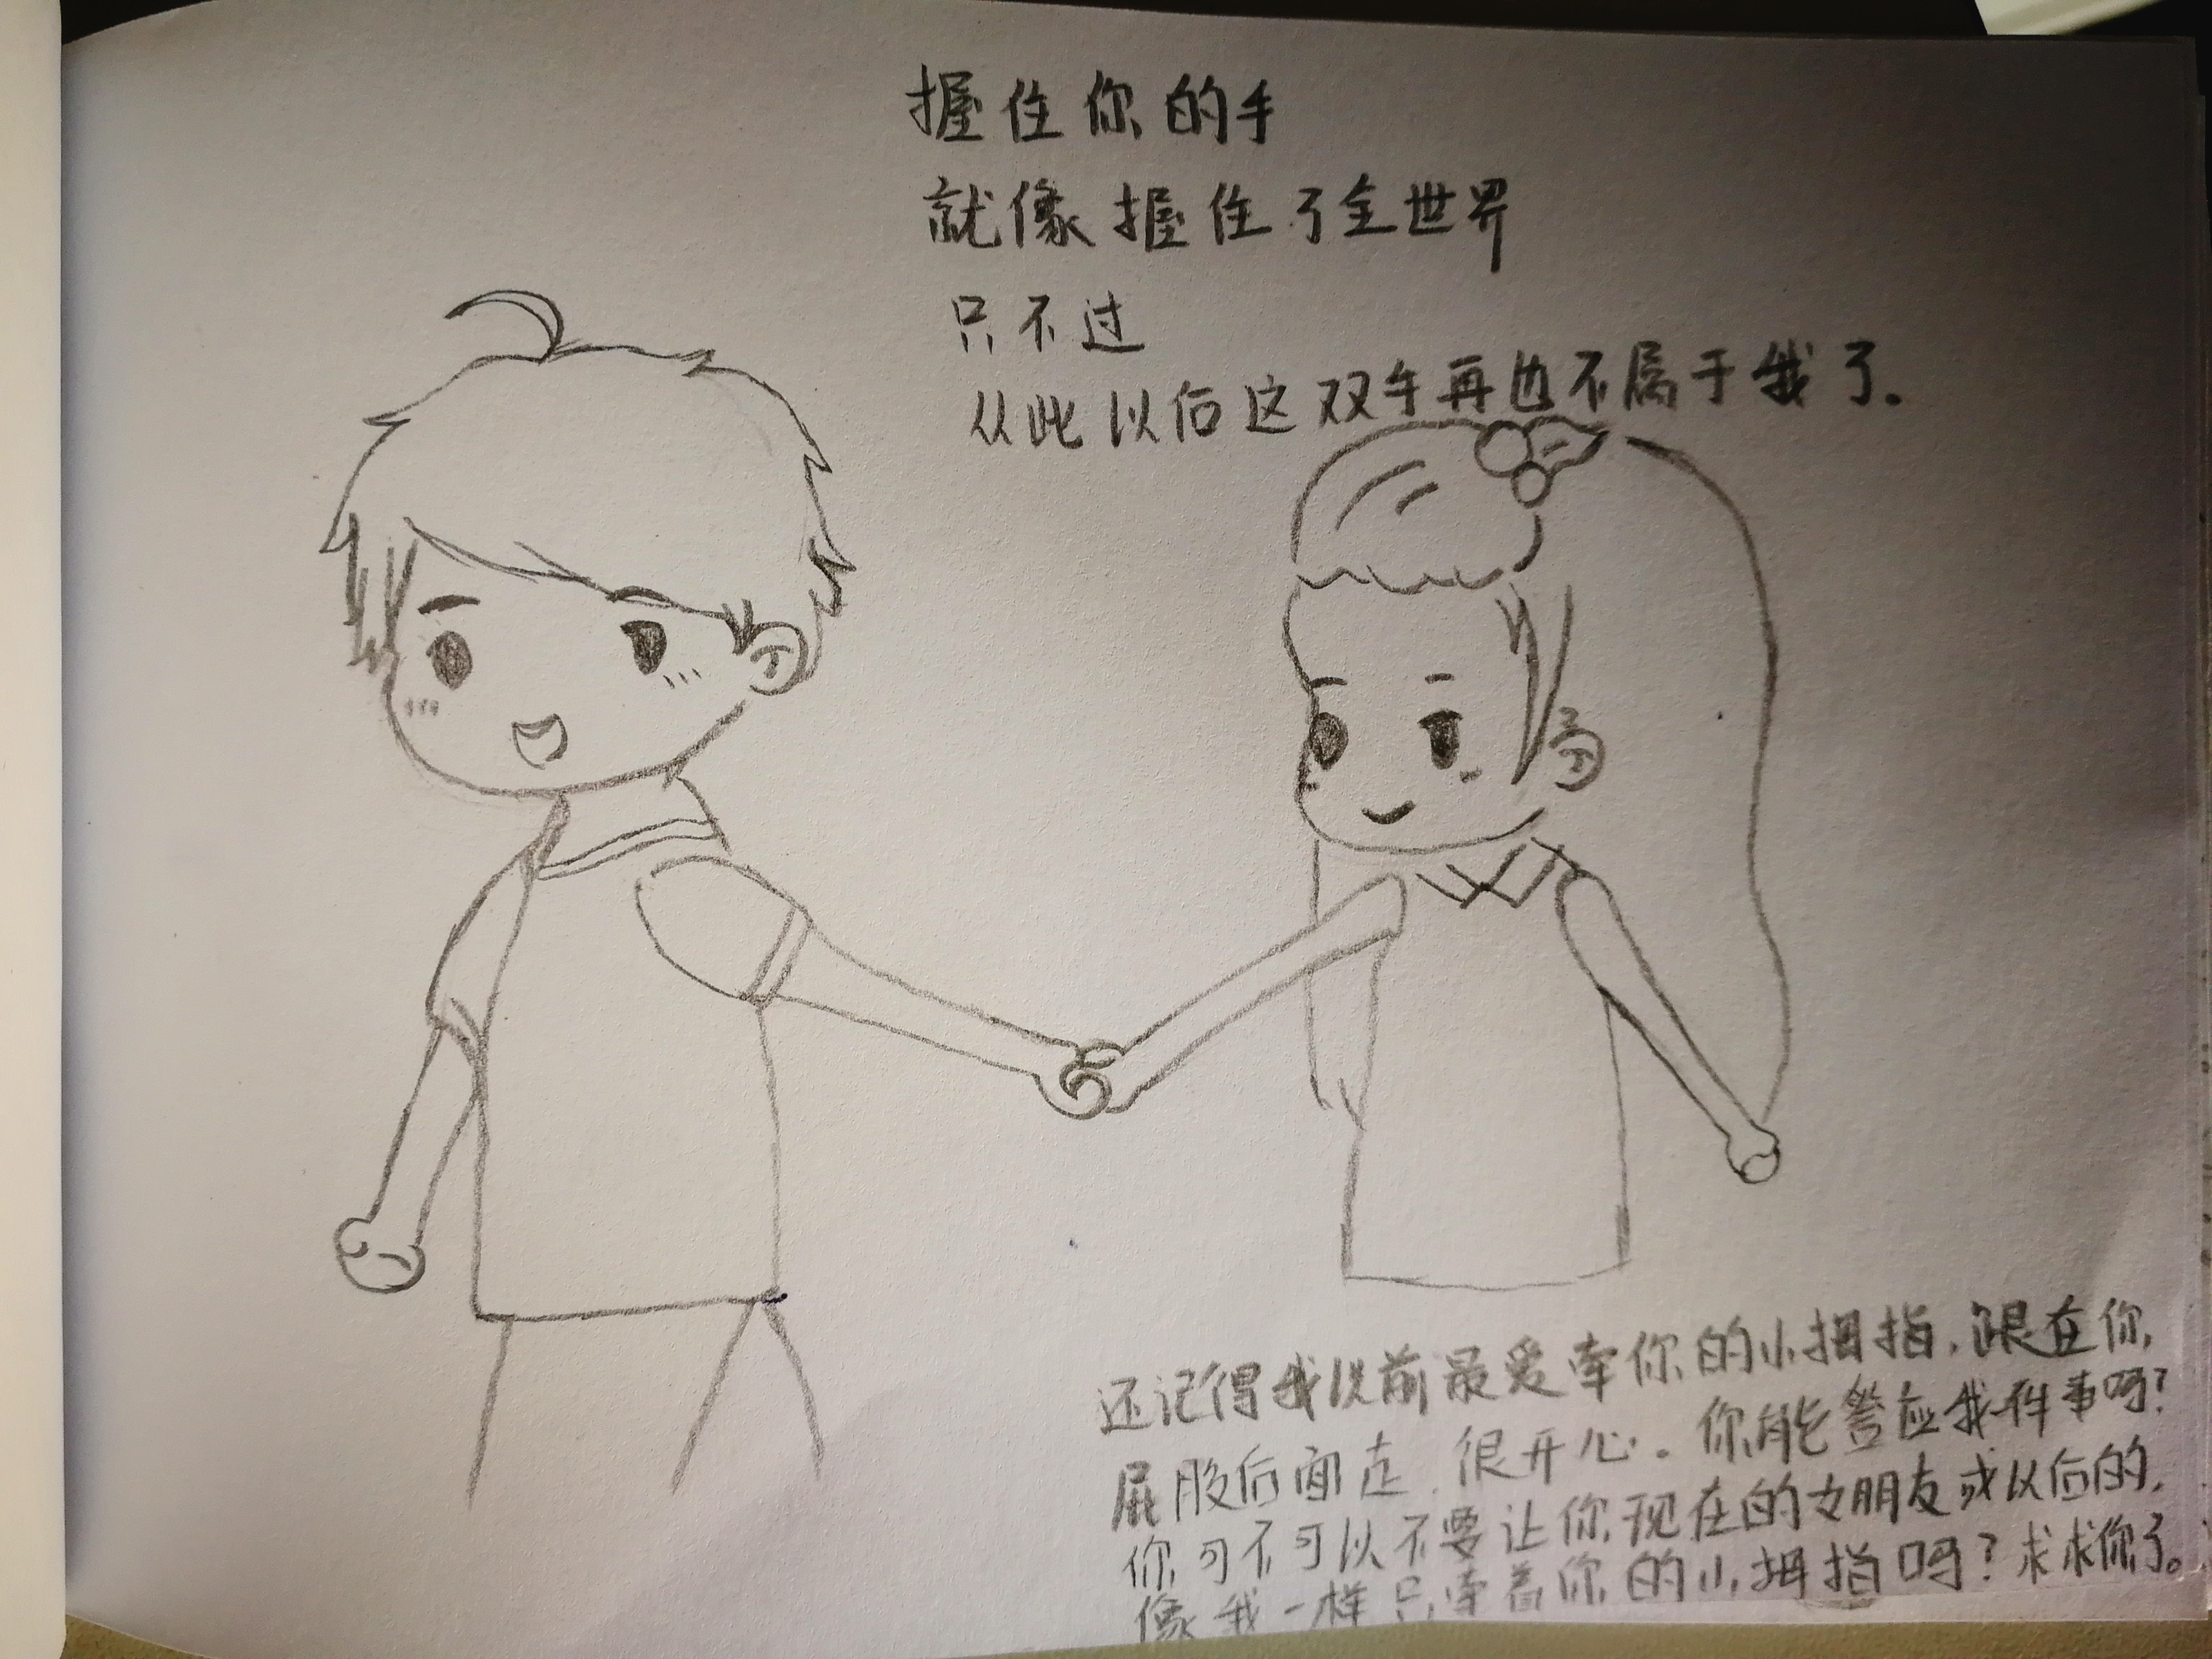 握住你的手
就像握住了全世界
只不过
从此以后这双手再也不属于我了.
还记得我以前最爱牵你的小拇指,跟在你
屁股后面走.很开心.你能答应我件事吗?
你可不可以不要让你现在的女朋友或以后的,
像我一样只牵着你的小拇指吗?求求你了。